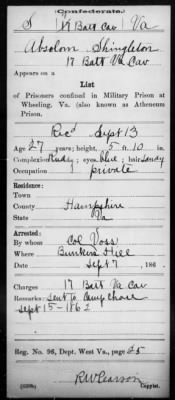 Confederate.
S | 17 Batt Cav | Va
Absolom Shingleton
17 Batt Va Cav
Appears on a
List
of Prisoners confined in Military Prison at
Wheeling, Va. (also known as Atheneum
Prison.
Rec'd Sept 13
Age 27 years; height, 5 ft. 10 in.
Complexion Ruddy; eyes, blue; hair, sandy
Occupation private
Residence:
Town
County Hampshire
State Va
Arrested:
By whom Col Voss
Where Bunkers Hill
When Sept 7, 186
Charges 17 Batt Va Cav
Remarks: sent to Camp Chase
Sept 15-1862
Reg. No. 96, Dept. West Va., page 25
R W Pearson
Copyist.